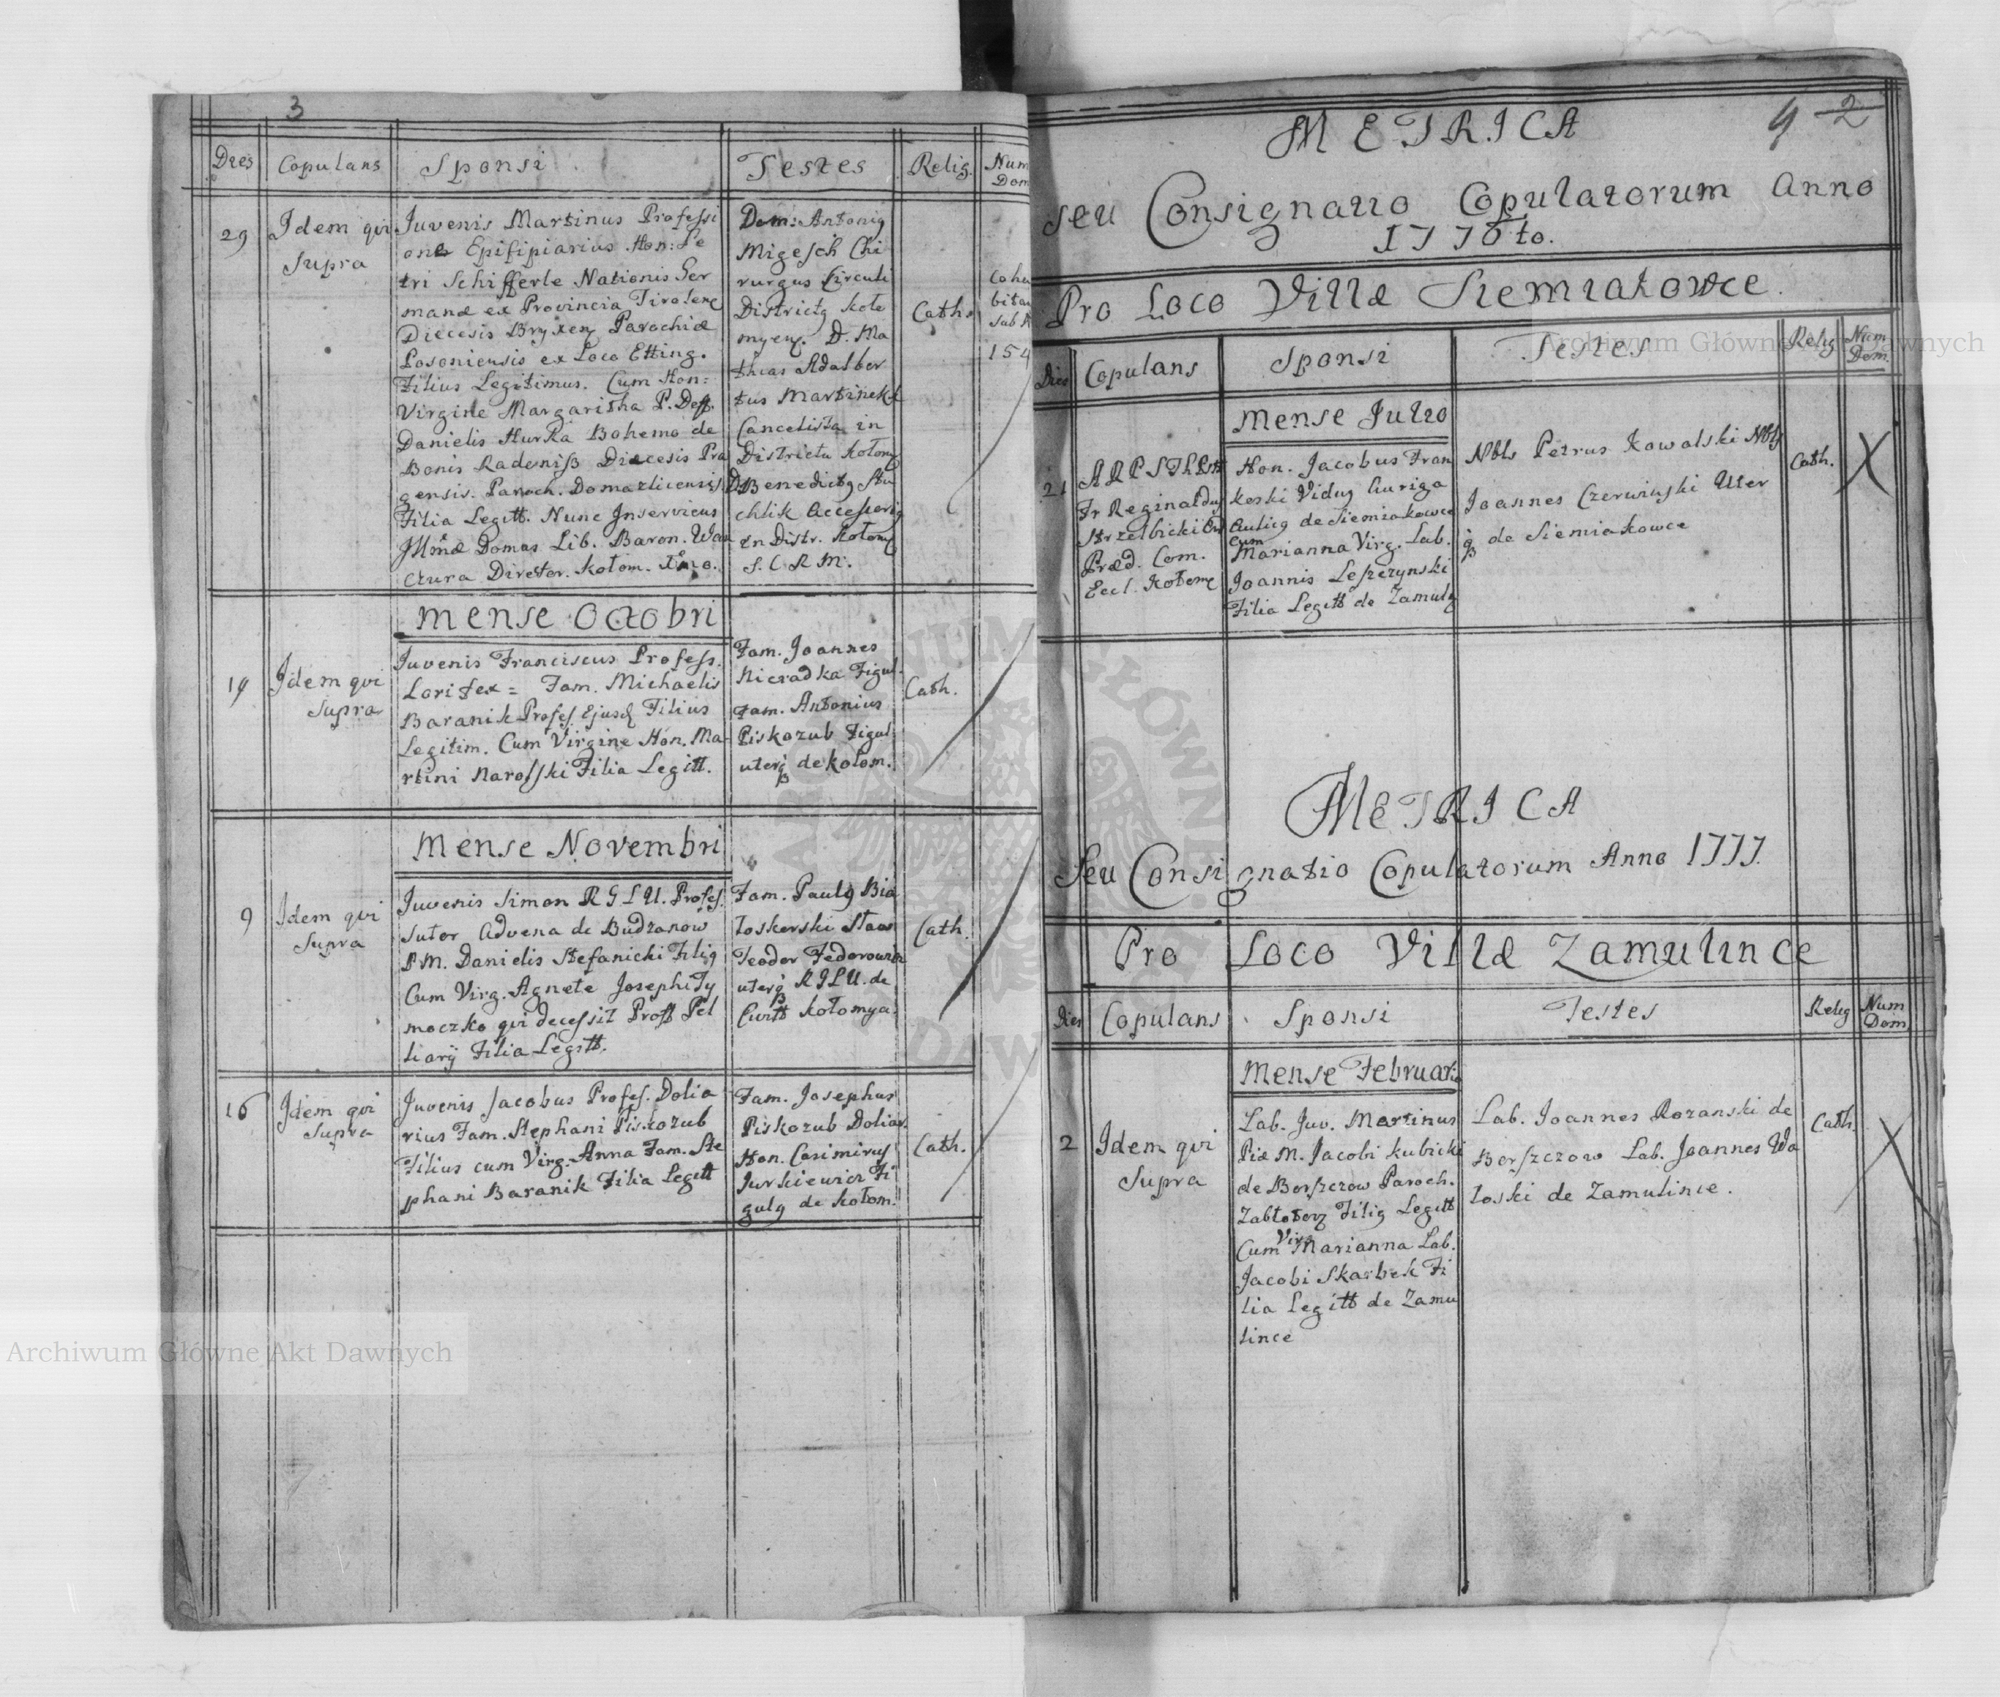 3
Dies
Copulans
Sponsi
Testes
Relig.
Num
Dom
29
Idem qvi
supra
Juvenis Martinus Professi
one Epifipiarius Hon: Pe
tri Schifferle Nationis Ger
manæ ex Provincia Tirolenę
Diecesis Bryxeņ Parochiæ
Posoniensis ex Loco Etting.
Filius Legitimus. Cum Hon:
Virgine Margaritha P. Deff.
Danielis Hurka Bohemo de
Bonis Radeniß Diæcesis Pra
gensis. Paroch. Domazlicensis
Filia Legitt. Nunc Inserviens
Illmæ Domus Lib. Baron.
czura Director. Kołom.
Dom: Antonig
Migesch Chi
rurgus Circuli
Districtg Koło
myeņ. D. Ma
thias Adalber
tus Martinek
Cancelista in
Districtu Kołomy
D. Benedictg Stu
chlik Accessorig
in Distr. Kołomy
S. C. R. M:.
Cath.
Coha
bitan
sub N
154
mense Octobri
19
Idem qvi
supra
Juvenis Franciscus Profess.
Lorifex = Fam. Michaelis
Baranik Profes. Ejusd Filius
Legitim. Cum Virgine Hon. Ma-
rtini Narosski Filia Legitt.
Fam. Joannes
Nieradka Figul.
Fam. Antonius
Piskozub Figul
uterq de kołom.
Cath.
Mense Novembri
9
Idem qvi
supra
Juvenis Simon R G L U. Profes.
sutor Advena de Budzanow
P. M. Danielis Stefanicki Filig
Cum Virg. Agnete Josephi Ty
moczko qvi decessit Proff Pel
liarÿ Filia Legitt.
Fam. Paulg Bia
łoskorski
Teodor Fedorowicz
uterq R G L U. de
Civitt Kołomya.
Cath.
16
Idem qvi
supra
Juvenis Jacobus Profes. Dolia
rius Fam. Stephani Piskozub
Filius cum Virg. Anna Fam. Ste
phani Baranik Filia Legitt
Fam. Josephus
Piskozub Doliar.
Hon. Casimirus
Jurkiewicz Fi
gulg de Kołom.
Cath.
4 2
METRICA
seu Consignatio Copulatorum Anno
1776to.
Pro Loco Villæ Siemiakowce.
Dies
Copulans
Sponsi
Testes
Relig
Num
Dom.
mense Julio
21
Fr Reginaldus
Strzelbicki Ord
Præd. Com.
Eccl. Kołomę
Hon. Jacobus Fran
keski Vidug Auriga
Aulicg de Siemiakowce
Cum
Marianna Virg. Lab.
Joannis Leszczynski
Filia Legitt de Zamulę
Nbls Petrus Kowalski Nbls
Joannes Czerwinski Uter
q de Siemiakowce
Cath.
METRICA
Seu Consignatio Copulatorum Anno 1777.
Pro Loco Villæ Zamulince
Dies
Copulans
Sponsi
Testes
Relig
Num
Dom
Mense Februar.
2
Idem qvi
supra
Lab. Juv. Martinus
Piæ M. Jacobi Kubicki
de Borszczow Paroch.
Filig Legitt
Virg
Cum Marianna Lab.
Jacobi Skarbek Fi
lia Legitt de Zamu
lince
Lab. Joannes Rozanski de
Borszczow Lab. Joannes Wa
łoski de Zamulince.
Cath.
Archiwum Główne Akt Dawnych
Archiwum Główne Akt Dawnych
ARCHIWUM GŁÓWNE AKT DAWNYCH